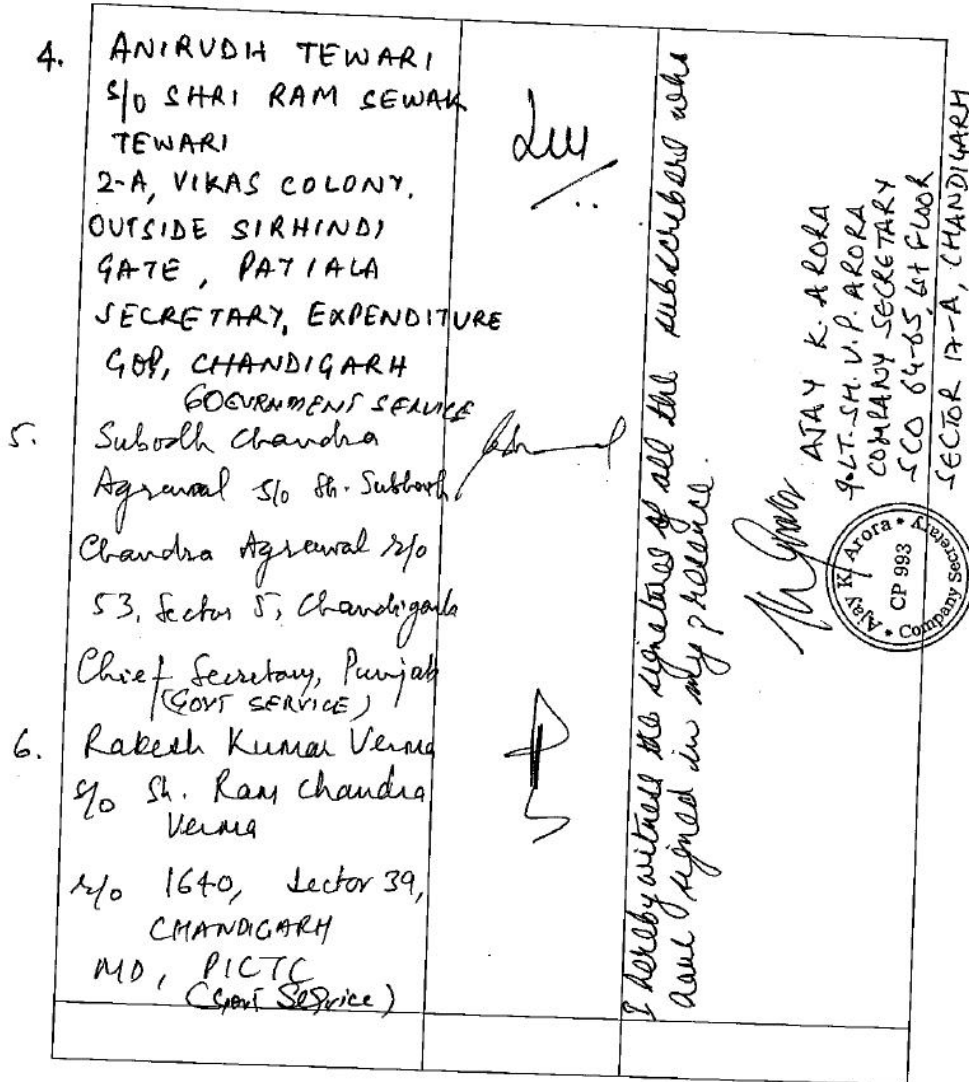 4. ANIRUDH TEWARI
S/O SHRI RAM SEWAK
TEWARI
2-A, VIKAS COLONY,
OUTSIDE SIRHINDI
GATE, PATIALA
SECRETARY, EXPENDITURE
GOP, CHANDIGARH
GOEVRNMENT SERVICE
5. Subodh Chandra
Agrawal S/o Sh. Subhash
Chandra Agrawal r/o
53, Sector 5, Chandigarh
Chief Secretary, Punjab
(GOVT SERVICE)
6. Rakesh Kumar Verma
S/o Sh. Ram Chandra
Verma
r/o 1640, Sector 39,
CHANDIGARH
MD, PICTC
(Govt Service)
I hereby witness the signatures of all the subscribers who
have signed in my presence.
AJAY K. ARORA
LT. SH. V. P. ARORA
COMPANY SECRETARY
SCO 64-65, 1st FLOOR
SECTOR 17-A, CHANDIGARH
Ajay K. Arora * Company Secretary *
CP 993